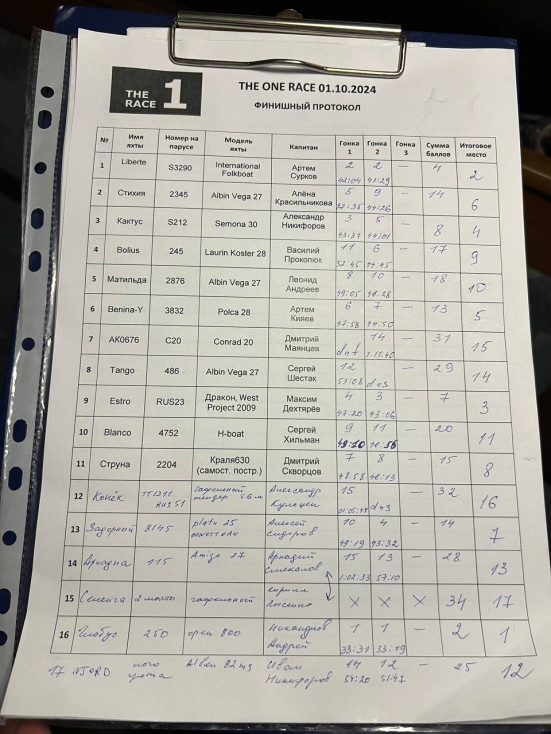 THE RACE 1
THE ONE RACE 01.10.2024
ФИНИШНЫЙ ПРОТОКОЛ
№ Имя яхты Номер на парусе Модель яхты Капитан Гонка 1 Гонка 2 Гонка 3 Сумма баллов Итоговое место
1 Liberte S3290 International Folkboat Артем Сурков 2 42:04 2 41:29 — 4 2
2 Стихия 2345 Albin Vega 27 Алёна Красильникова 5 9 44:26 — 14 6
3 Кактус S212 Semona 30 Александр Никифоров 3 43:31 5 44:01 — 8 4
4 Bolius 245 Laurin Koster 28 Василий Прокопюк 11 52:45 6 44:45 — 17 9
5 Матильда 2876 Albin Vega 27 Леонид Андреев 8 49:05 10 46:28 — 18 10
6 Benina-Y 3832 Polca 28 Артем Кияев 6 47:58 7 44:50 — 13 5
7 AK0676 C20 Conrad 20 Дмитрий Маянцев dnf 14 1:11:40 — 31 15
8 Tango 486 Albin Vega 27 Сергей Шестак 12 53:08 dns — 29 14
9 Estro RUS23 Дракон, West Project 2009 Максим Дехтярёв 4 47:20 3 43:06 — 7 3
10 Blanco 4752 H-boat Сергей Хильман 9 49:10 11 — 20 11
11 Струна 2204 Краля630 (самост. постр.) Дмитрий Скворцов 7 48:58 8 — 15 8
12 Конёк гафельный тендер Александр 15 dns — 32 16
13 Задорный 8145 Алексей Сидоров 10 49:19 4 43:32 — 14 7
14 Ариадна 115 Amigo 27 Аркадий Смекалов 15 1:02:33 13 57:10 — 28 13
15 Селенга 2 мачты гафельный Кирилл X X X 34 17
16 Глобус 250 open 800 Никандров Андрей 1 33:31 1 33:19 — 2 1
17 NJORD Иван Никифоров 14 54:20 12 51:47 — 25 12